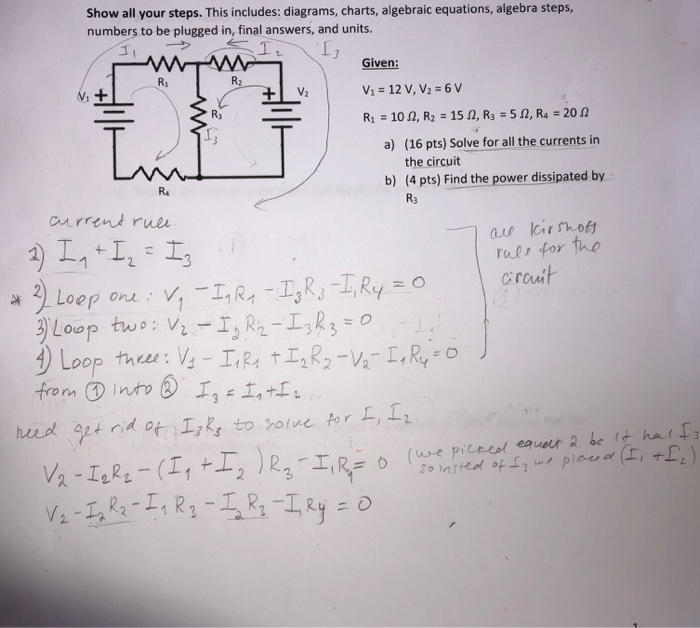 Show all your steps. This includes: diagrams, charts, algebraic equations, algebra steps,
numbers to be plugged in, final answers, and units.
I₁ I₂ I₃
R₁ R₂
V₁ + + V₂
R₃
I₃
R₄
Given:
V₁ = 12 V, V₂ = 6 V
R₁ = 10 Ω, R₂ = 15 Ω, R₃ = 5 Ω, R₄ = 20 Ω
a) (16 pts) Solve for all the currents in
the circuit
b) (4 pts) Find the power dissipated by
R₃
current rule
1) I₁ + I₂ = I₃
* 2) Loop one: V₁ - I₁R₁ - I₃R₃ - I₁R₄ = 0
3) Loop two: V₂ - I₂R₂ - I₃R₃ = 0
4) Loop three: V₁ - I₁R₁ + I₂R₂ - V₂ - I₁R₄ = 0
are kirshoff
rule for the
circuit
from ① into ② I₃ = I₁ + I₂
need get rid of I₃R₃ to solve for I₁ I₂
V₂ - I₂R₂ - (I₁ + I₂)R₃ - I₁R₄ = 0
(we picked 2 be it has I₃
so insted of I₃ we placed (I₁ + I₂)
V₂ - I₂R₂ - I₁R₃ - I₂R₃ - I₁R₄ = 0
1